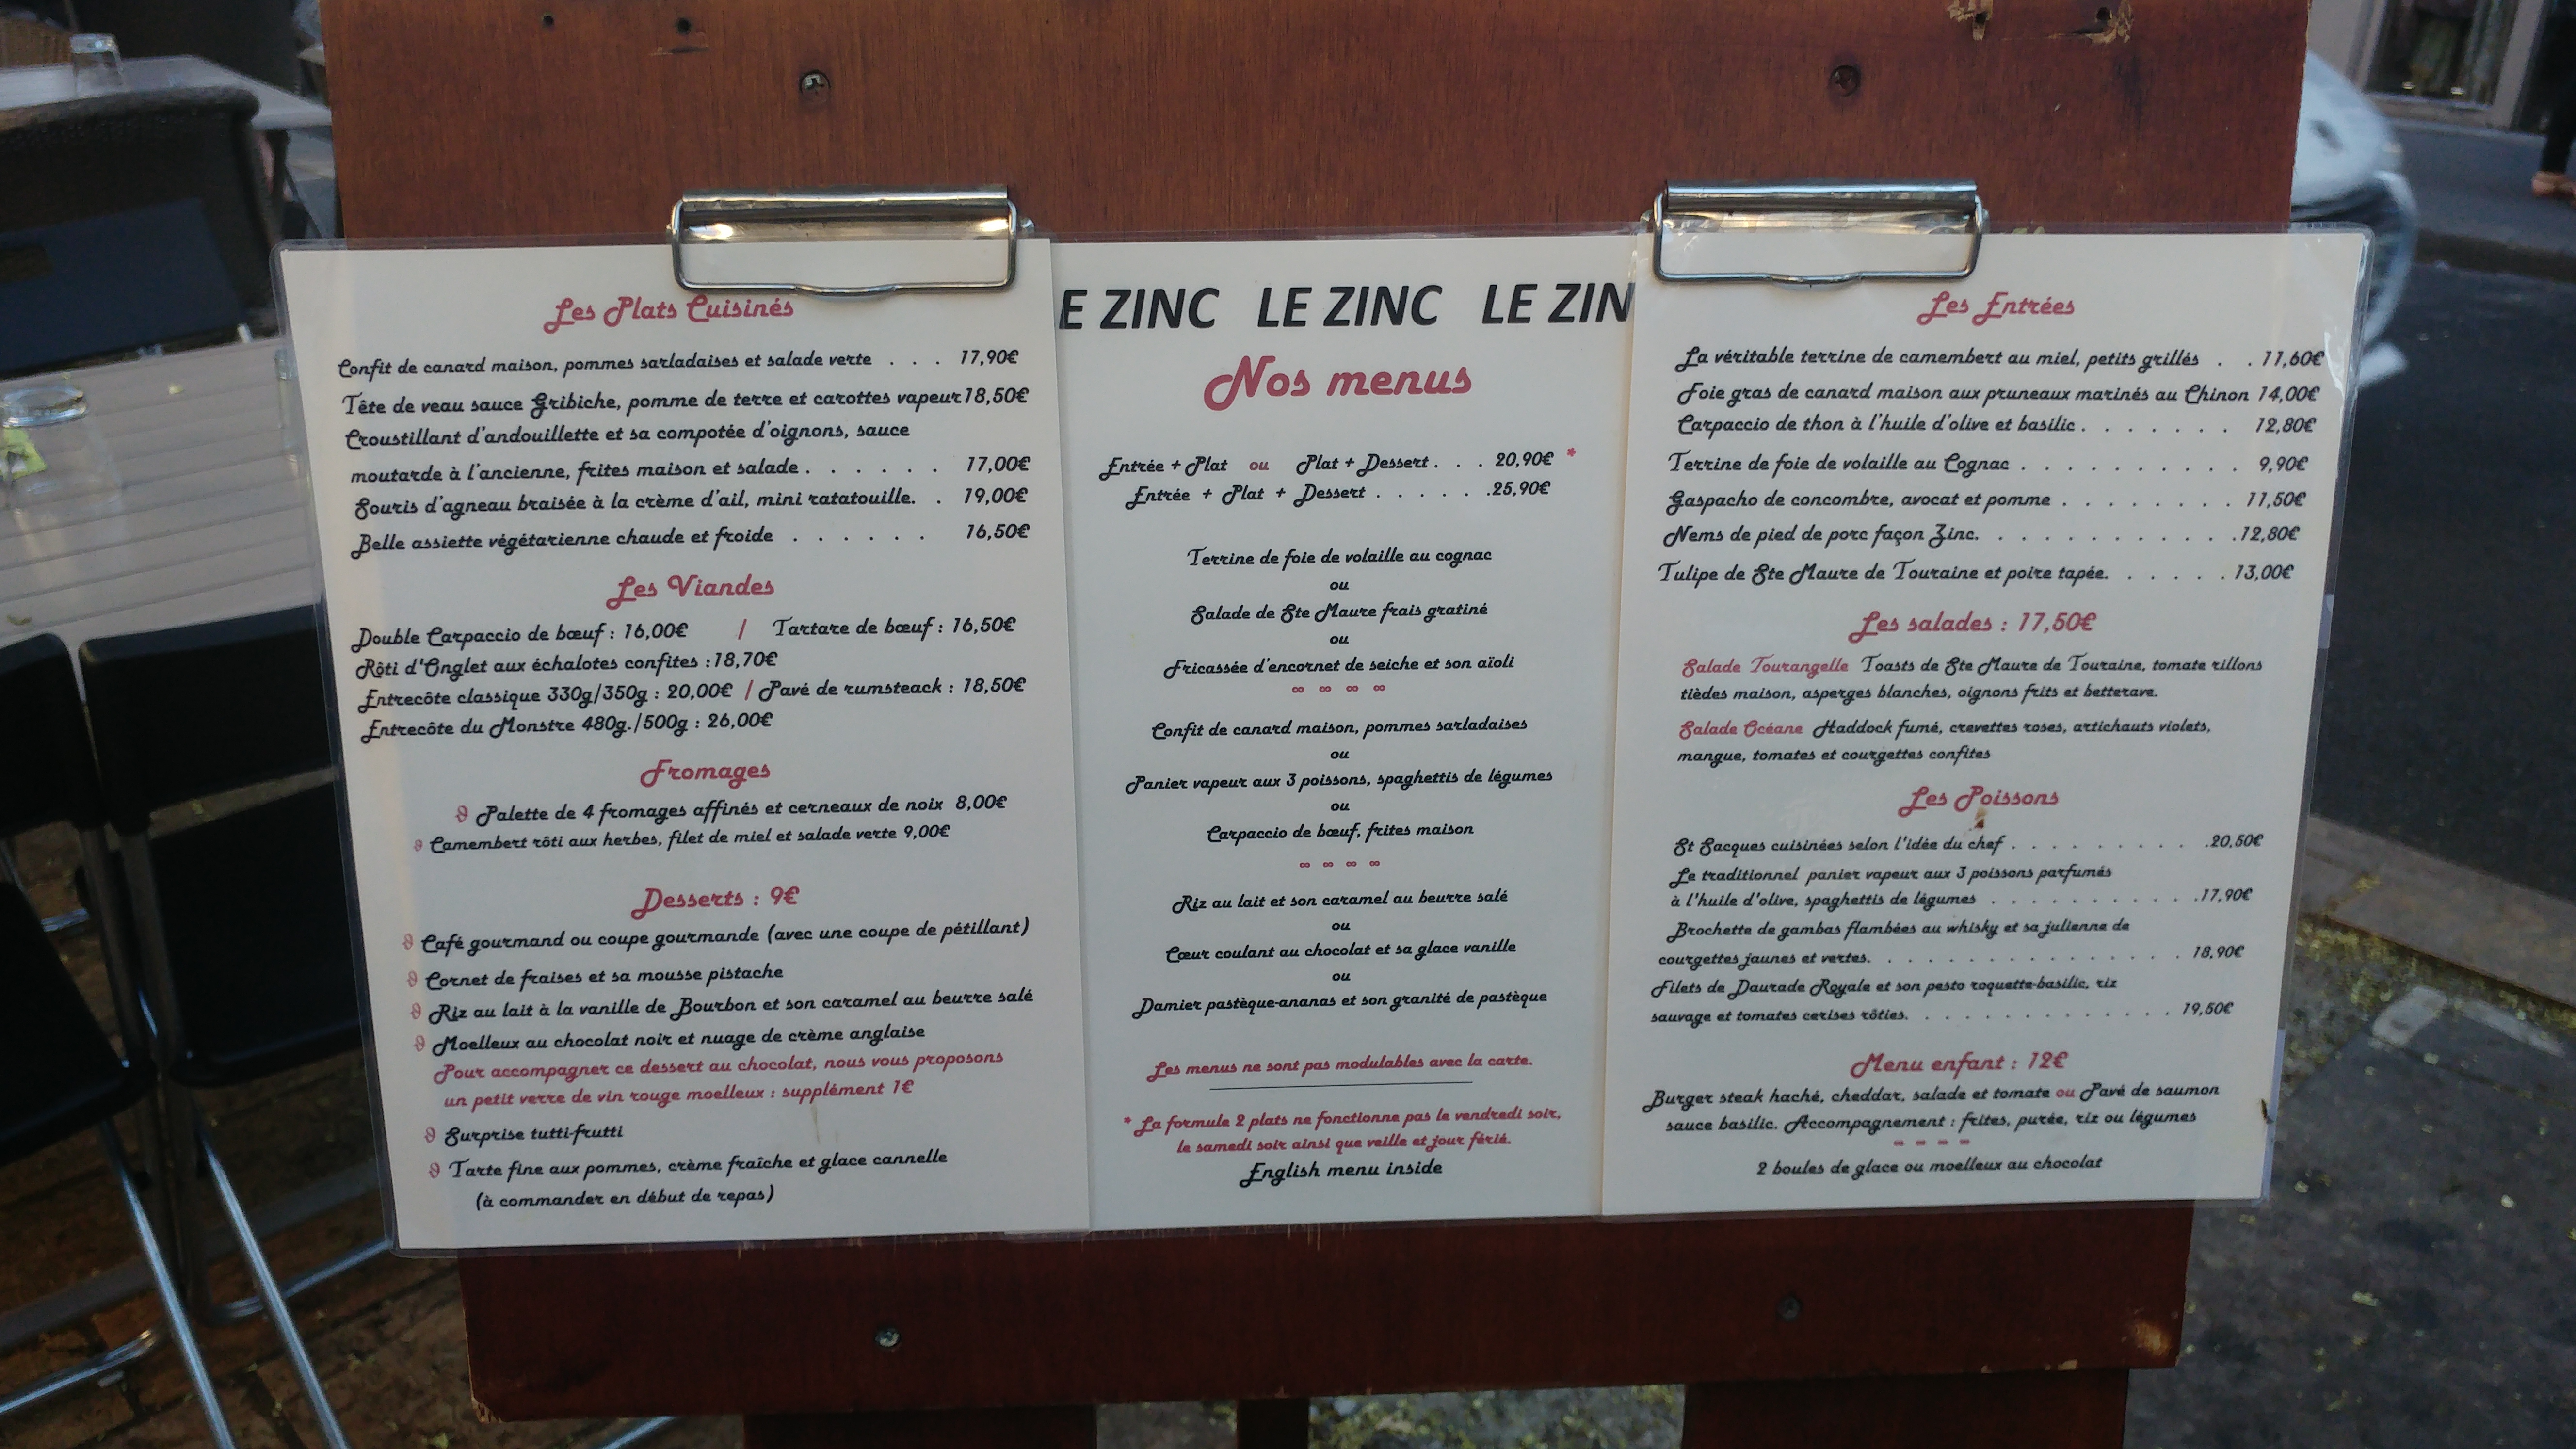 Les Plats Cuisinés
Confit de canard maison, pommes sarladaises et salade verte . . . 17,90€
Tête de veau sauce Gribiche, pomme de terre et carottes vapeur 18,50€
Croustillant d'andouillette et sa compotée d'oignons, sauce
moutarde à l'ancienne, frites maison et salade . . . . . . 17,00€
Souris d'agneau braisée à la crème d'ail, mini ratatouille. . 19,00€
Belle assiette végétarienne chaude et froide . . . . . . 16,50€
Les Viandes
Double Carpaccio de bœuf : 16,00€ / Tartare de bœuf : 16,50€
Rôti d'Onglet aux échalotes confites :18,70€
Entrecôte classique 330g/350g : 20,00€ / Pavé de rumsteack : 18,50€
Entrecôte du Monstre 480g./500g : 26,00€
Fromages
Palette de 4 fromages affinés et cerneaux de noix 8,00€
Camembert rôti aux herbes, filet de miel et salade verte 9,00€
Desserts : 9€
Café gourmand ou coupe gourmande (avec une coupe de pétillant)
Cornet de fraises et sa mousse pistache
Riz au lait à la vanille de Bourbon et son caramel au beurre salé
Moelleux au chocolat noir et nuage de crème anglaise
Pour accompagner ce dessert au chocolat, nous vous proposons
un petit verre de vin rouge moelleux : supplément 1€
Surprise tutti-frutti
Tarte fine aux pommes, crème fraîche et glace cannelle
(à commander en début de repas)
E ZINC LE ZINC LE ZIN
Nos menus
Entrée + Plat ou Plat + Dessert . . . 20,90€ *
Entrée + Plat + Dessert . . . . . .25,90€
Terrine de foie de volaille au cognac
ou
Salade de Ste Maure frais gratiné
ou
Fricassée d'encornet de seiche et son aïoli
∞ ∞ ∞ ∞
Confit de canard maison, pommes sarladaises
ou
Panier vapeur aux 3 poissons, spaghettis de légumes
ou
Carpaccio de bœuf, frites maison
∞ ∞ ∞ ∞
Riz au lait et son caramel au beurre salé
ou
Cœur coulant au chocolat et sa glace vanille
ou
Damier pastèque-ananas et son granité de pastèque
Les menus ne sont pas modulables avec la carte.
* La formule 2 plats ne fonctionne pas le vendredi soir,
le samedi soir ainsi que veille et jour férié.
English menu inside
Les Entrées
La véritable terrine de camembert au miel, petits grillés . . 11,60€
Foie gras de canard maison aux pruneaux marinés au Chinon 14,00€
Carpaccio de thon à l'huile d'olive et basilic . . . . . . . 12,80€
Terrine de foie de volaille au Cognac . . . . . . . . . . 9,90€
Gaspacho de concombre, avocat et pomme . . . . . . . . 11,50€
Nems de pied de porc façon Zinc. . . . . . . . . . . .12,80€
Tulipe de Ste Maure de Touraine et poire tapée. . . . . . 13,00€
Les salades : 17,50€
Salade Tourangelle Toasts de Ste Maure de Touraine, tomate rillons
tièdes maison, asperges blanches, oignons frits et betterave.
Salade Océane Haddock fumé, crevettes roses, artichauts violets,
mangue, tomates et courgettes confites
Les Poissons
St Sacques cuisinées selon l'idée du chef . . . . . . . . .20,50€
Le traditionnel panier vapeur aux 3 poissons parfumés
à l'huile d'olive, spaghettis de légumes . . . . . . . . . .17,90€
Brochette de gambas flambées au whisky et sa julienne de
courgettes jaunes et vertes. . . . . . . . . . . . . . . 18,90€
Filets de Daurade Royale et son pesto roquette-basilic, riz
sauvage et tomates cerises rôties. . . . . . . . . . . . . 19,50€
Menu enfant : 12€
Burger steak haché, cheddar, salade et tomate ou Pavé de saumon
sauce basilic. Accompagnement : frites, purée, riz ou légumes
- - - -
2 boules de glace ou moelleux au chocolat